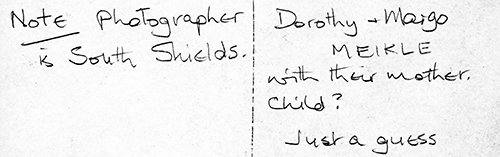 Note Photographer
is South Shields.
Dorothy + Margo
MEIKLE
with their mother.
Child?
Just a guess